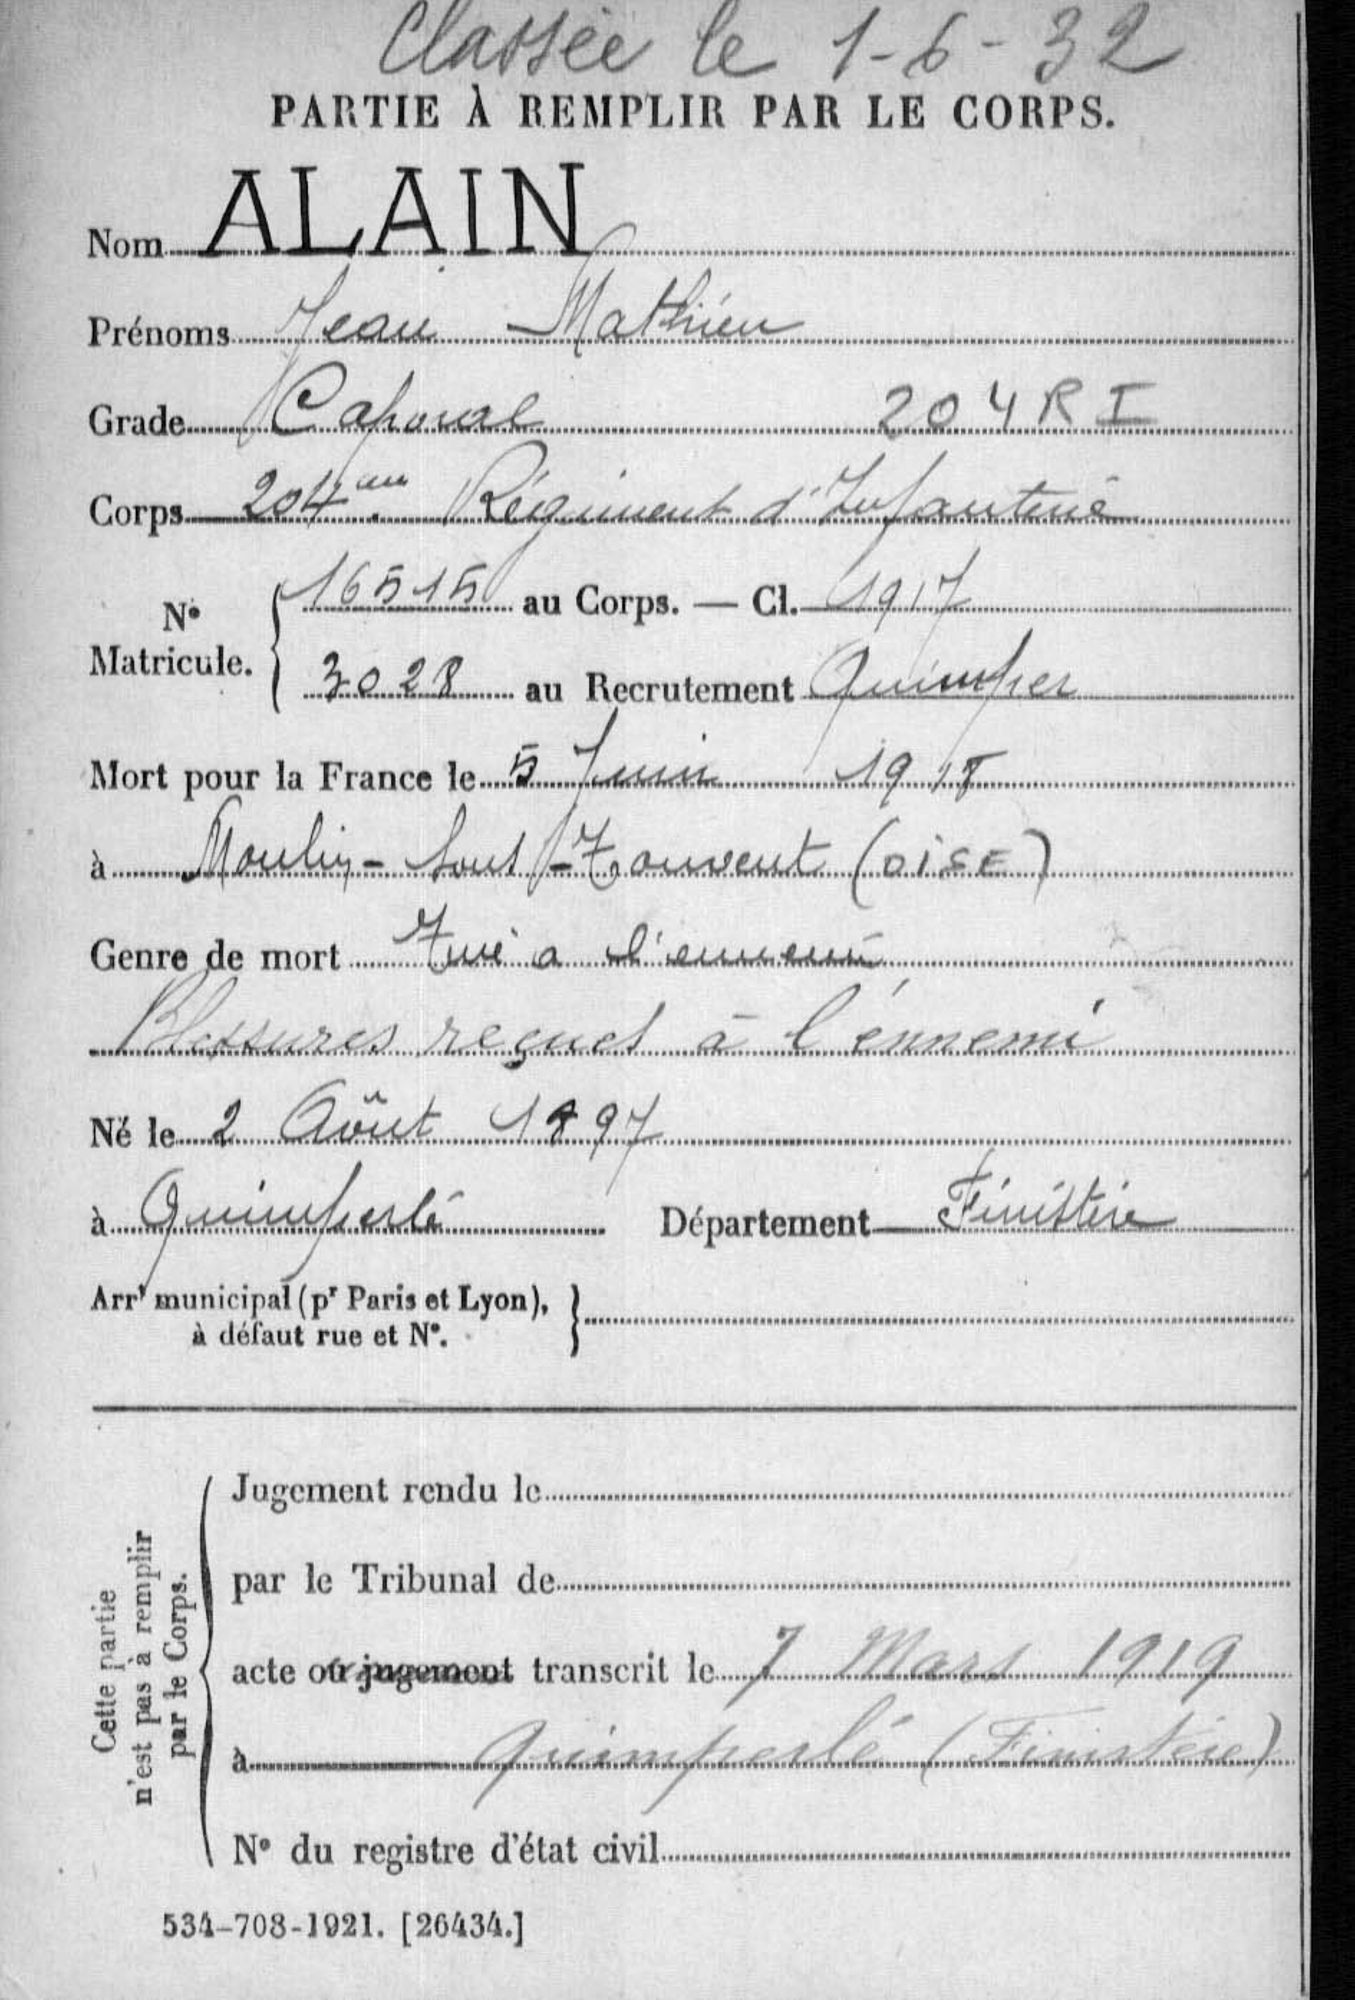 Classée le 1-6-32
PARTIE À REMPLIR PAR LE CORPS.
Nom ALAIN
Prénoms Jean Mathieu
Grade Caporal 204 R I
Corps 204ème Régiment d'Infanterie
N° Matricule. { 16515 au Corps. — Cl. 1917
3028 au Recrutement Quimper
Mort pour la France le 5 Juin 1918
à Moulin-Sous-Touvent (OISE)
Genre de mort Tué a l'ennemi
Blessures reçues à l'énnemi
Né le 2 Août 1897
à Quimperlé Département Finistère
Arrt municipal (pr Paris et Lyon), }
à défaut rue et N°.
Cette partie
n'est pas à remplir
par le Corps.
Jugement rendu le
par le Tribunal de
acte ou jugement transcrit le 7 Mars 1919
à Quimperlé (Finistère)
N° du registre d'état civil
534-708-1921. [26434.]